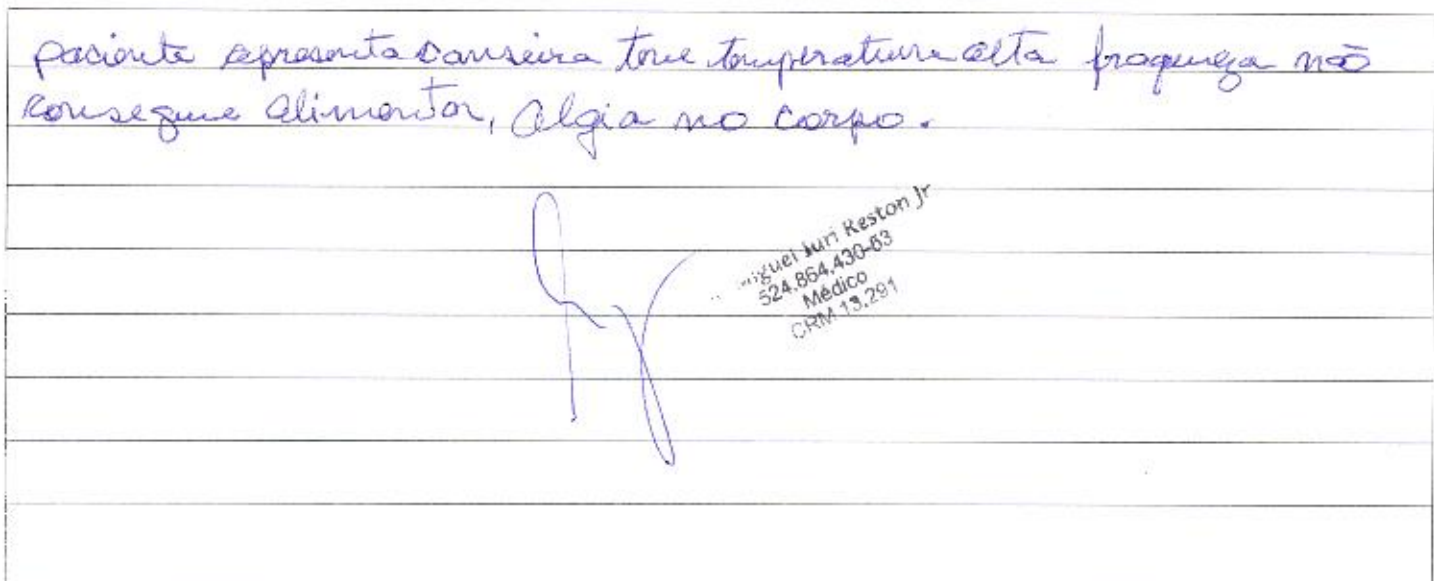 paciente apresenta canseira torse temperatura alta fraqueza não
consegue alimentar, algia no corpo.
iguel Iuri Keston Jr
524.864.430-63
Médico
CRM 13.291